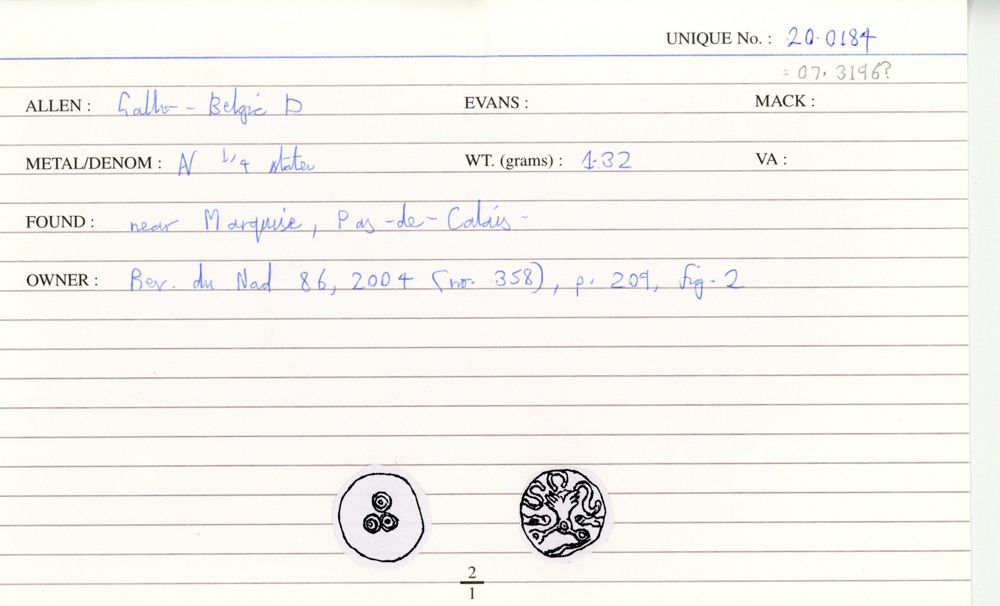 UNIQUE No. : 20.0184
= 07. 3196?
ALLEN : Gallo-Belgic D EVANS : MACK :
METAL/DENOM : AV 1/4 stater WT. (grams) : 1.32 VA :
FOUND : near Marquise, Pas-de-Calais-
OWNER : Rev. du Nad 86, 2004 (no. 358), p. 209, fig. 2
2
1